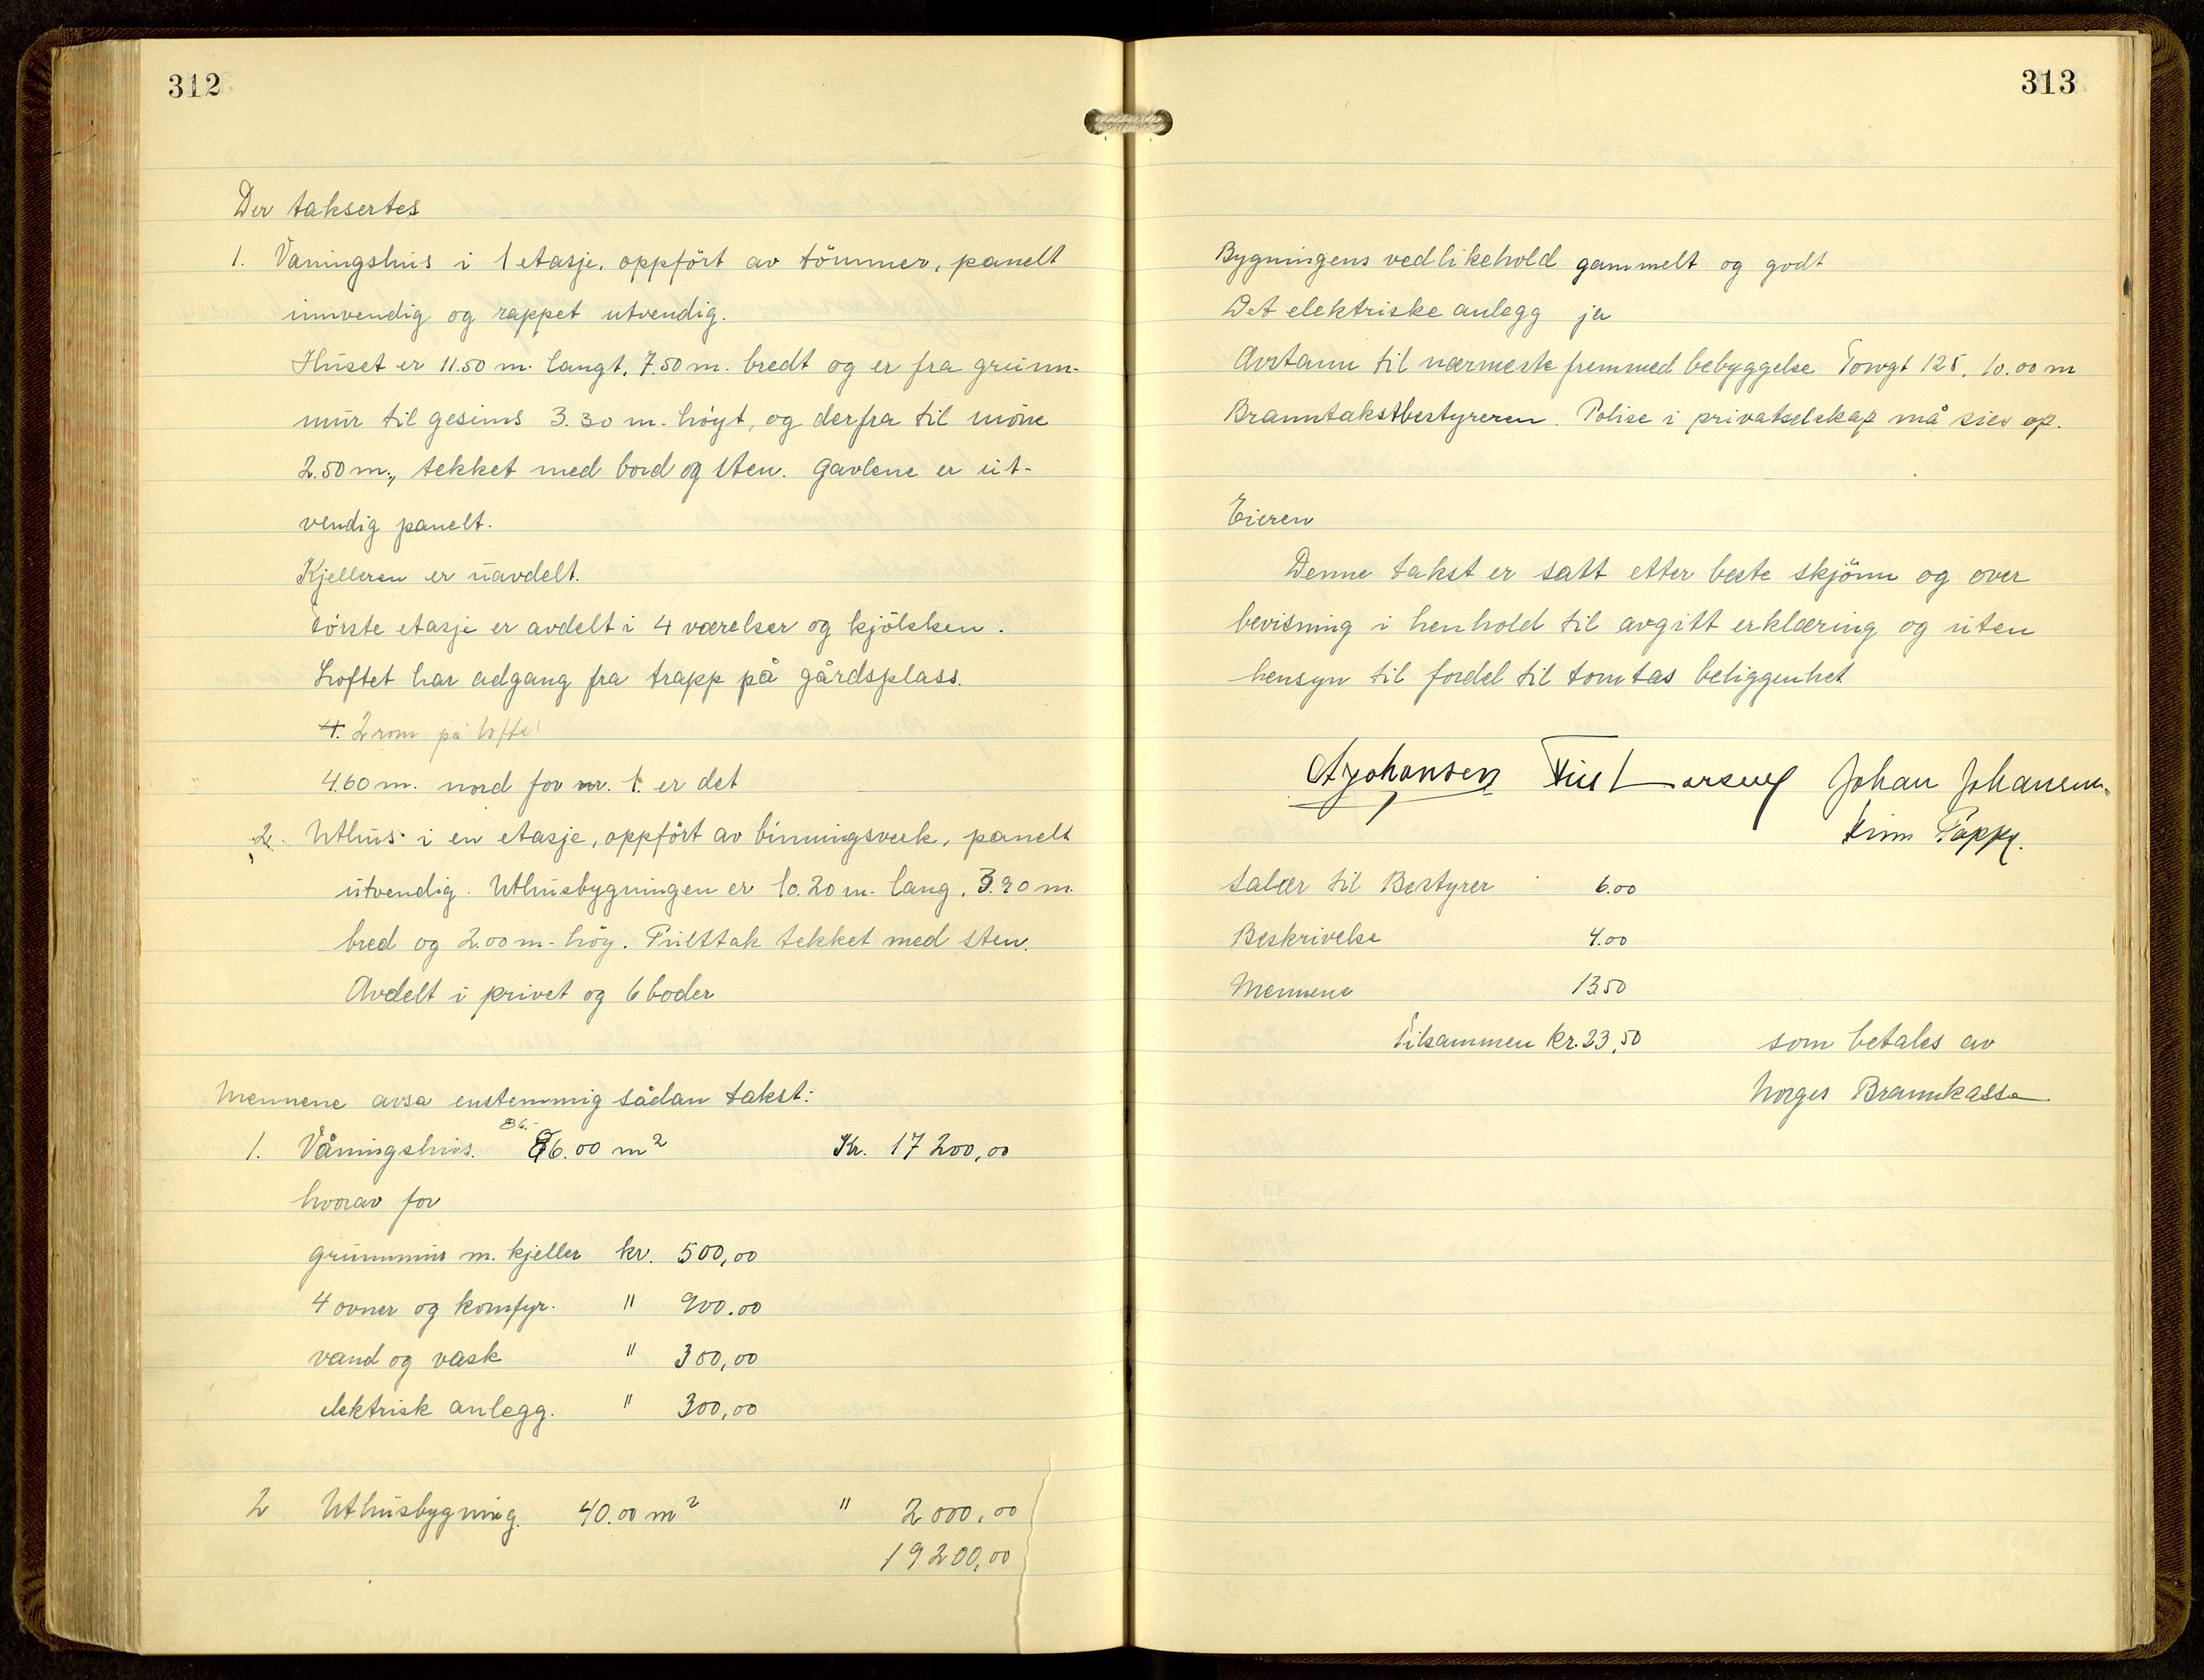 312
Der taksertes
1. Vaningshus i 1 etasje, oppfört av tömmer, panelt
innvendig og rappet utvendig.
Huset er 11.50 m. langt, 7.50 m. bredt og er fra grunn-
mur til gesims 3.30 m. höyt, og derfra til möne
2.50 m., tekket med bord og sten. Gavlene er ut-
vendig panelt.
Kjelleren er uavdelt.
Förste etasje er avdelt i 4 værelser og kjökken.
Loftet har adgang fra trapp på gårdsplass.
2 rom på lofte
4.60 m. nord for nr. 1. er det
2. Uthus i en etasje, oppfört av binningsverk, panelt
utvendig. Uthusbygningen er 10.20 m. lang, 3.90 m.
bred og 2.00 m. höy. Pulttak tekket med sten.
Avdelt i privet og 6 boder
Mennene avsa enstemmig sådan takst:
86.-
1. Våningshus. 86.00 m² Kr. 17 200,00
hvorav for
grunnmur m. kjeller kr. 500,00
4 ovner og komfyr. " 900.00
vand og vask " 300,00
elektrisk anlegg. " 300,00
2 Uthusbygning. 40.00 m² " 2 000,00
19200,00
313
Bygningens vedlikehold gammelt og godt
Det elektriske anlegg ja
Avstann til nærmeste fremmed bebyggelse Torvgt 125, 10.00 m
Branntakstbestyreren. Polise i privatselskap må sies op.
Eieren
Denne takst er satt etter beste skjönn og over
bevisning i henhold til avgitt erklæring og uten
hensyn til fordel til tomtas beliggenhet
A Johansen Larsen Johan Johansen.
Finn Tappy.
Salær til Bestyrer 6.00
Beskrivelse 4.00
Mennene 13.50
Tilsammen kr. 23,50 som betales av
Norges Brannkasse